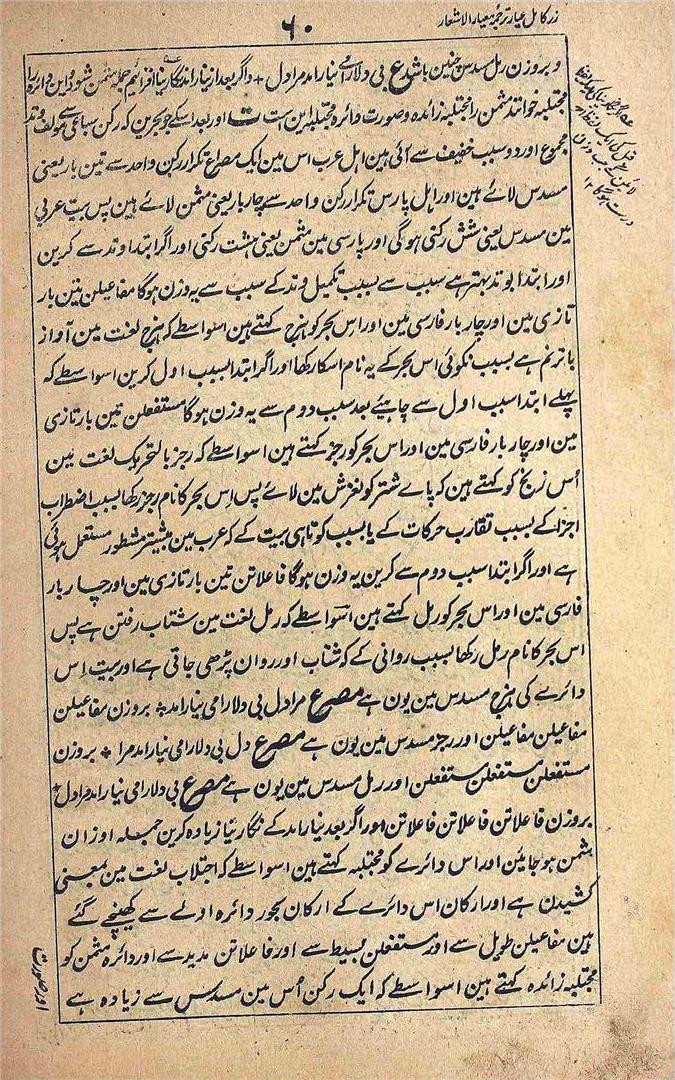 زر کامل عیار ترجمۂ معیار الاشعار
۶۰
و بروزن رمل مسدس چنین باشد ع بی دلارامی نیارامد مرا دل + و اگر بعد از نیارامد نگارینا افزائیم جمله مثمن شود و این دائره را
مجتلبہ خوانند مثمن را مجتلبہ زائدہ و صورت دائرہ مجتلبہ این است ت اور بعد اسکے جو بحرین کہ رکن سباعی سے مولف و تد
مجموع اور دو سبب خفیف سے آئی ہین اہل عرب اس مین ایک مصراع تکرار رکن واحد سے تین بار یعنی
مسدس لائے ہین اور اہل پارس تکرار رکن واحد سے چار بار یعنی مثمن لائے ہین پس بیت عربی
مین مسدس یعنی شش رکنی ہوگی اور پارسی مین مثمن یعنی ہشت رکنی اور اگر ابتدا وتد سے کرین
اور ابتدا بوتد بہتر ہے سبب سے بسبب تکمیل وتد کے سبب سے یہ وزن ہوگا مفاعیلن تین بار
تازی مین اور چار بار فارسی مین اور اس بحر کو ہزج کہتے ہین اسواسطے کہ ہزج لغت مین آواز
با ترنم ہے بسبب نکوئی اس بحر کے یہ نام اسکا رکھا اور اگر ابتدا بسبب اول کرین اسواسطے کہ
پہلے ابتدا سبب اول سے چاہئے بعد سبب دوم سے یہ وزن ہوگا مستفعلن تین بار تازی
مین اور چار بار فارسی مین اور اس بحر کو رجز کہتے ہین اسواسطے کہ رجز بالتحریک لغت مین
اُس رنج کو کہتے ہین کہ پاے شتر کو لغزش مین لائے پس اس بحر کا نام رجز رکھا بسبب اضطراب
اجزا کے بسبب تقارب حرکات کے یا بسبب کوتاہی بیت کے کہ عرب مین بیشتر مشطور مستعمل ہوئی
ہے اور اگر ابتدا سبب دوم سے کرین یہ وزن ہوگا فاعلاتن تین بار تازی مین اور چار بار
فارسی مین اور اس بحر کو رمل کہتے ہین اسواسطے کہ رمل لغت مین شتاب رفتن ہے پس
اس بحر کا نام رمل رکھا بسبب روانی کے کہ شتاب اور روان پڑھی جاتی ہے اور بیت اس
دائرے کی ہزج مسدس مین یون ہے مصرع مرا دل بی دلارامی نیارامد + بروزن مفاعیلن
مفاعیلن مفاعیلن اور رجز مسدس مین یون ہے مصرع دل بی دلارامی نیارامد مرا + بروزن
مستفعلن مستفعلن مستفعلن اور رمل مسدس مین یون ہے مصرع بی دلارامی نیارامد مرا دل +
بروزن فاعلاتن فاعلاتن فاعلاتن اور اگر بعد نیارامد کے نگارینا زیادہ کرین جملہ اوزان
مثمن ہو جائین اور اس دائرے کو مجتلبہ کہتے ہین اسواسطے کہ اجتلاب لغت مین بمعنی
کشیدن ہے اور ارکان اس دائرے کے ارکان بحور دائرہ اولے سے کھینچے گئے
ہین مفاعیلن طویل سے اور مستفعلن بسیط سے اور فاعلاتن مدید سے اور دائرہ مثمن کو
مجتلبہ زائدہ کہتے ہین اسواسطے کہ ایک رکن اُس مین مسدس سے زیادہ ہے
اور صورت